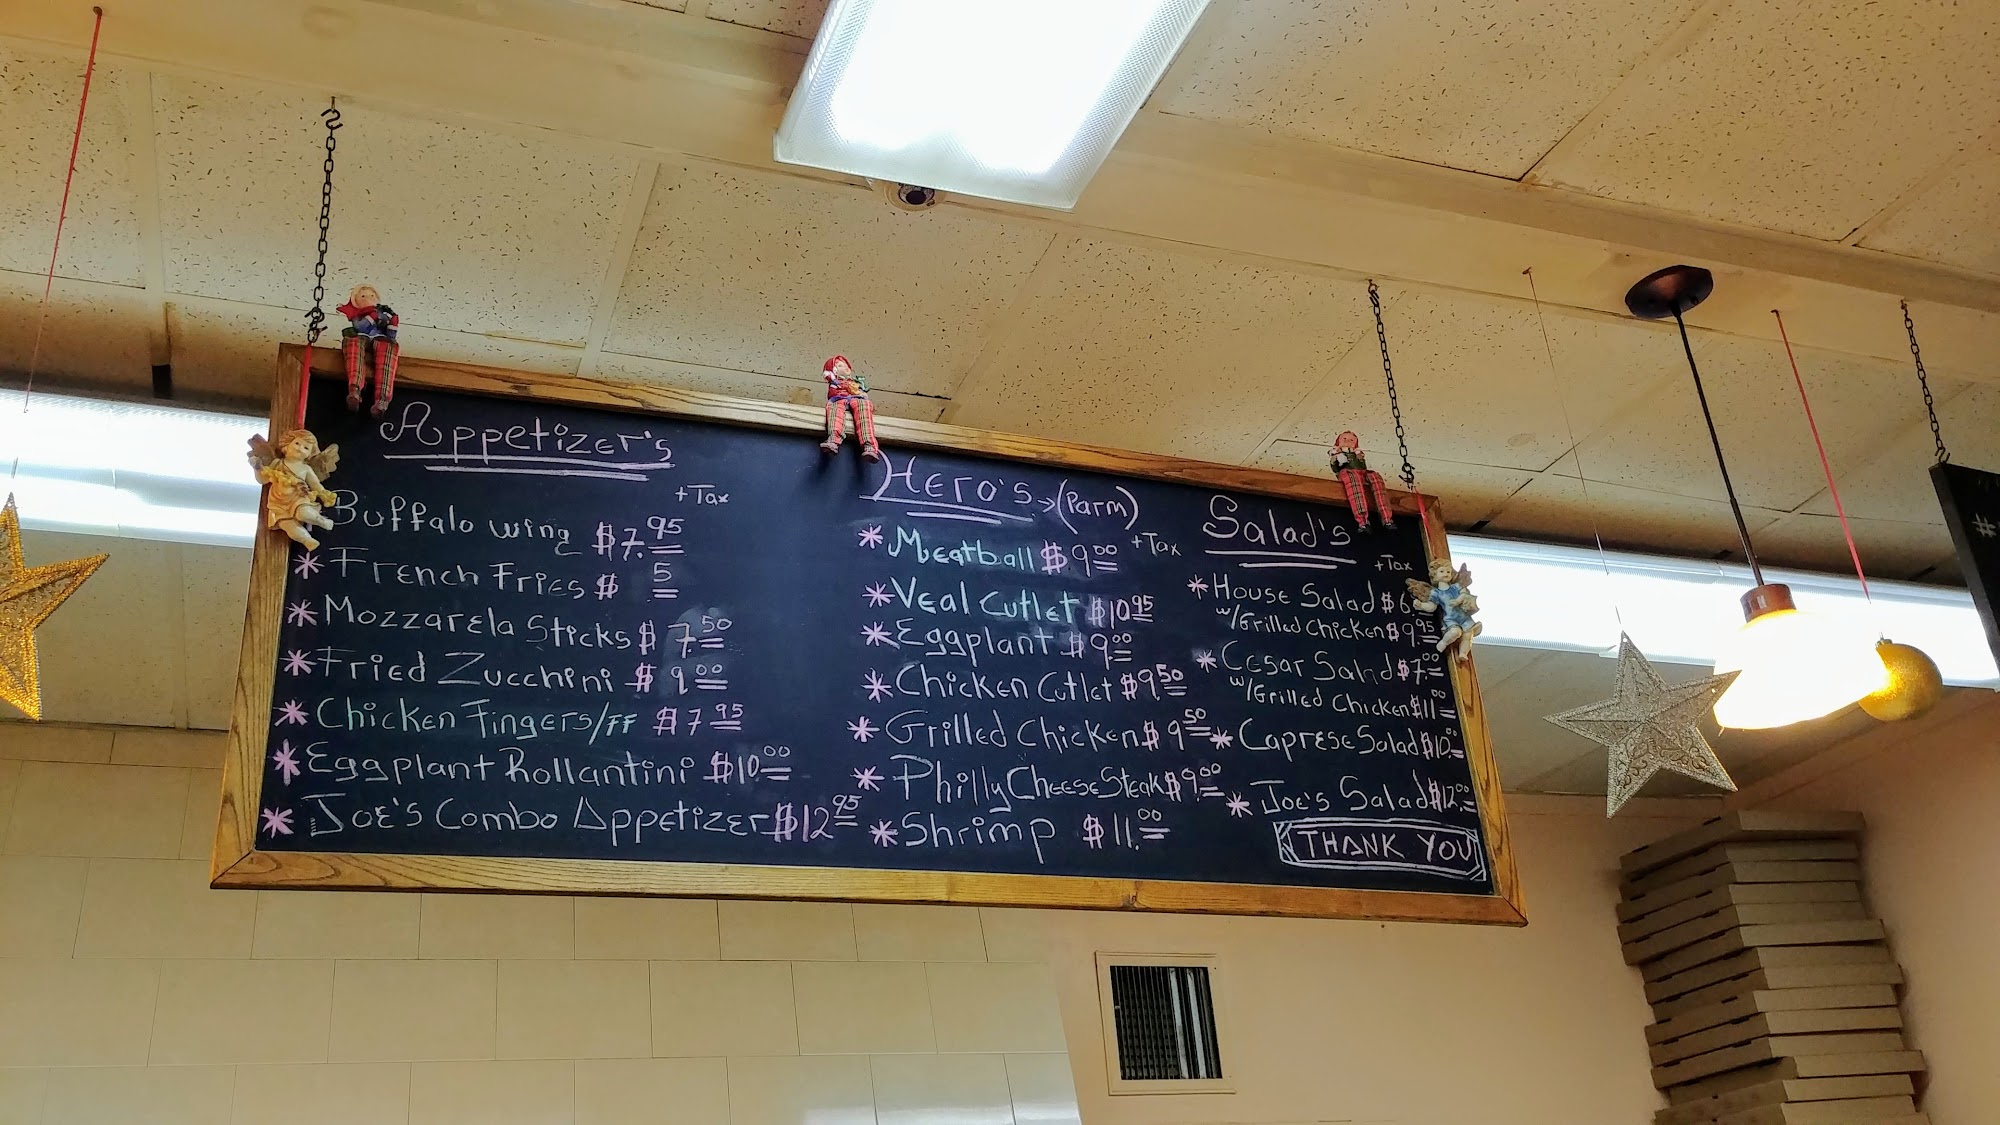 Appetizer's
+Tax
Buffalo wing $7.95
* French Fries $5
* Mozzarela Sticks $7.50
* Fried Zucchini $9.00
* Chicken Fingers/FF $7.95
* Eggplant Rollantini $10.00
* Joe's Combo Appetizer $12.95
Hero's → (Parm)
+Tax
* Meatball $9.00
* Veal Cutlet $10.95
* Eggplant $9.00
* Chicken Cutlet $9.50
* Grilled Chicken $9.50
* Philly Cheese Steak $9.00
* Shrimp $11.00
Salad's
+Tax
* House Salad $6.
w/Grilled Chicken $9.95
* Cesar Salad $7.00
w/Grilled Chicken $11.00
* Caprese Salad $10.
* Joe's Salad $12.
THANK YOU
#